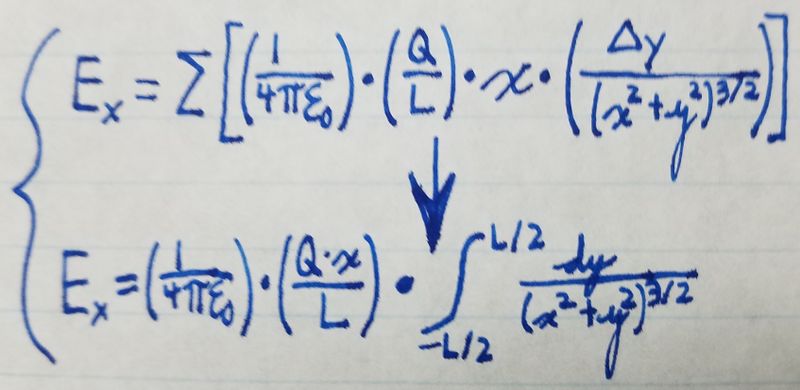 E_x = Σ[(1/4πε₀)·(Q/L)·x·(Δy/(x²+y²)^3/2)]
E_x = (1/4πε₀)·(Q·x/L)·∫_{-L/2}^{L/2} dy/(x²+y²)^3/2